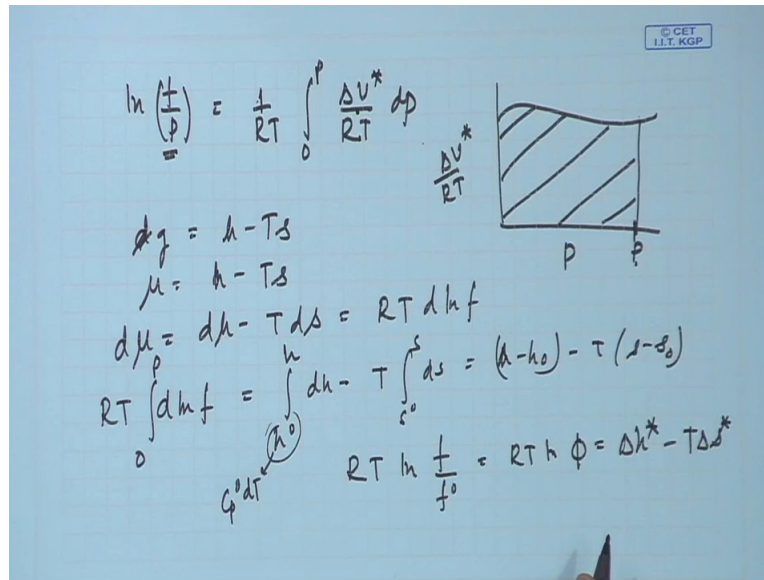 © CET
I.I.T. KGP
ln (f/P) = 1/RT ∫₀^P ΔV*/RT dp
ΔV*/RT
P P
dg = h - Ts
μ = h - Ts
dμ = dh - Tds = RT dln f
RT ∫₀^P dln f = ∫_{h⁰}^h dh - T ∫_{s⁰}^s ds = (h-h₀) - T (s-s₀)
Cp⁰dT
RT ln f/f⁰ = RT ln φ = Δh* - TΔs*